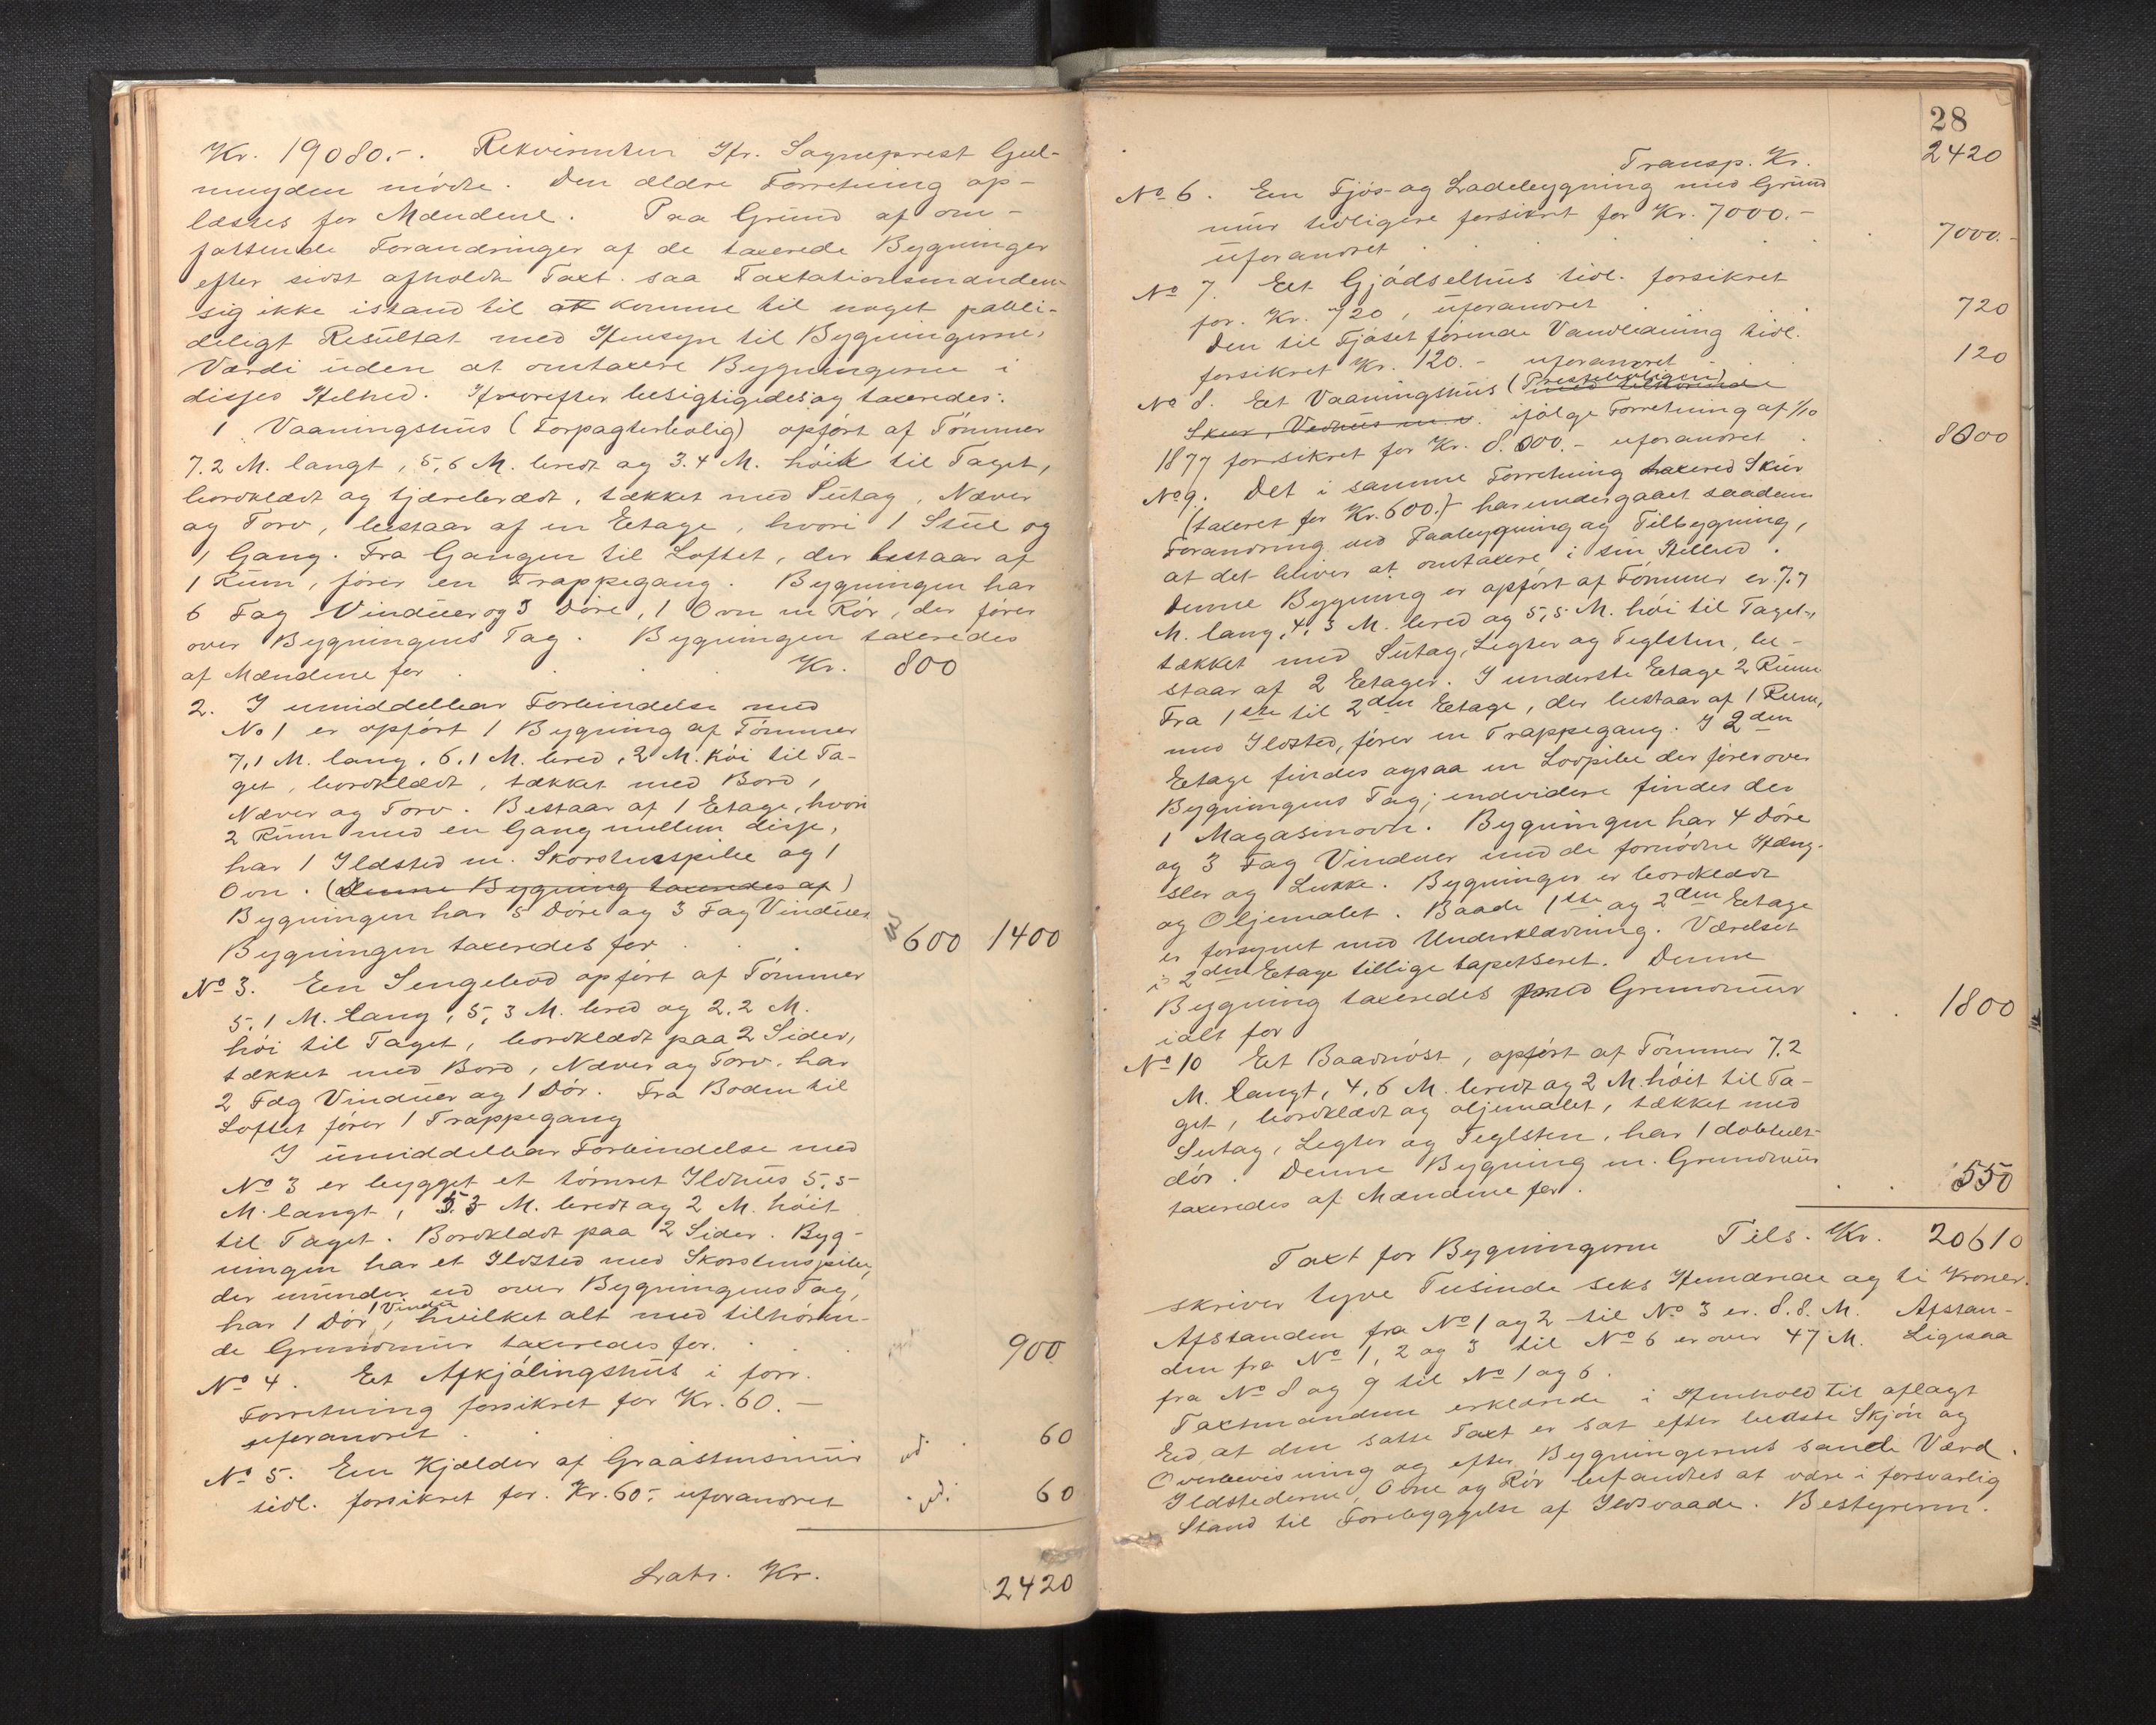 Kr. 19080.-. Rekvirenten Hr. Sogneprest Gjel-
muyden mødte. Den ældre Forretning op-
læstes for Mændene. Paa Grund af om-
fattende Forandringer af de taxerede Bygninger
efter sidst afholdt Taxt saa Taxtationsmændene
sig ikke istand til at komme til noget paali-
deligt Resultat med Hensyn til Bygningernes
Værdi uden at omtaxere Bygningerne i
disses Helhed. Hvorefter besigtigedes og taxeredes:
1 Vaaningshus (Forpagterbolig) opført af Tømmer
7.2 M. langt, 5,6 M. bredt og 3.4 M. høit til Taget,
bordklædt og tjærebrædt, tækket med Sutag, Næver
og Torv, bestaar af en Etage, hvori 1 Stue og
1 Gang. Fra Gangen til Loftet, der bestaar af
1 Rum, fører en Trappegang. Bygningen har
6 Fag Vinduer og 3 Døre, 1 Ovn m Rør, der fører
over Bygningens Tag. Bygningen taxeredes
af Mændene for . . . Kr. 800
2. I umiddelbar Forbindelse med
No 1 er opført 1 Bygning af Tømmer
7,1 M. lang, 6,1 M. bred, 2 M. høi til Ta-
get, bordklædt, tækket med Bord,
Næver og Torv. Bestaar af 1 Etage, hvori
2 Rum med en Gang mellem disse,
har 1 Ildsted m. Skorstenspibe og 1
Ovn. (Denne Bygning taxeredes af)
Bygningen har 5 Døre og 3 Fag Vinduer
Bygningen taxeredes for . . . 600 1400
No 3. Een Sengebod opført af Tømmer
5,1 M. lang, 5,3 M. bred og 2,2 M.
høi til Taget, bordklædt paa 2 Sider,
tækket med Bord, Næver og Torv, har
2 Fag Vinduer og 1 Dør. Fra Boden til
Loftet fører 1 Trappegang
I umiddelbar Forbindelse med
No 3 er bygget et tømret Ildhus 5,5
M. langt, 5.3 M. bredt og 2 M. høit
til Taget. Bordklædt paa 2 Sider. Byg-
ningen har et Ildsted med Skorstenspibe,
der munder ud over Bygningens Tag,
har 1 Dør, 1 Vindue hvilket alt med tilhøren-
de Grundmur taxeredes for. . . . 900
No 4. Et Afkjølingshus i forr.
Forretning forsikret for Kr. 60. -
uforandret . ud. . 60
No 5. Een Kjælder af Graastensmur
tidl. forsikret for Kr. 60.- uforandret . ud. 60
Latr. Kr. 2420
28
Transp. Kr. 2420
No 6. Een Fjøs- og Ladebygning med Grund
mur tidligere forsikret for Kr. 7000.-
uforandret . . . . 7000.-
No 7. Eet Gjødselhus tidl. forsikret
for. Kr. 720, uforandret . . 720
Den til Fjøset førende Vandledning tidl.
forsikret Kr. 120.- uforandret . 120
No 8. Eet Vaaningshus (Presteboligen) med tilhørende
Skur, Vedhus m.v. ifølge Forretning af 1/10
1877 forsikret for Kr. 8.000.- uforandret . . 8000
No 9. Det i samme Forretning taxered Skur
(taxeret for Kr. 600.) har undergaaet saadan
Forandring ved Paabygning og Tilbygning,
at det bliver at omtaxere i sin Helhed.
Denne Bygning er opført af Tømmer er 7,7
M. lang, 4,3 M. bred og 5,5 M. høi til Taget,
tækket med Sutag, Legter og Teglsten, be-
staar af 2 Etager. I underste Etage 2 Rum
Fra 1ste til 2den Etage, der bestaar af 1 Rum,
med Ildsted, fører en Trappegang. I 2den
Etage findes ogsaa en Lovpibe der fører over
Bygningens Tag; endvidere findes der
1 Magasinovn. Bygningen har 4 Døre
og 3 Fag Vinduer med de fornødne Hæng-
sler og Lukke. Bygningen er bordklædt
og Oljemalet. Baade 1ste og 2den Etage
er forsynet med Underklædning. Værelset
i 2den Etage tillige tapetseret. Denne
Bygning taxeredes med Grundmur
ialt for . . 1800
No 10 Et Baadnøst, opført af Tømmer 7.2
M. langt, 4,6 M. bredt og 2 M. høit til Ta-
get, bordklædt og oljemalet, tækket med
Sutag, Legter og Teglsten, har 1 dobbelt-
dør. Denne Bygning m. Grundmur
taxeredes af Mændene for . . . 550
Taxt for Bygningerne Tils. Kr. 20610
skriver tyve Tusinde seks Hundrede og ti Kroner.
Afstanden fra No 1 og 2 til No 3 er. 8.8. M. Afstan-
den fra No 1, 2 og 3 til No 6 er over 47 M. Ligesaa
fra No 8 og 9 til No 1 og 6.
Taxtmændene erklærede i Henhold til aflagt
Eed, at den satte Taxt er sat efter bedste Skjøn og
Overbevisning og efter Bygningernes sande Værd.
Ildstederne, Ovne og Rør befandtes at være i forsvarlig
Stand til Forebyggelse af Ildsvaade. Bestyreren.